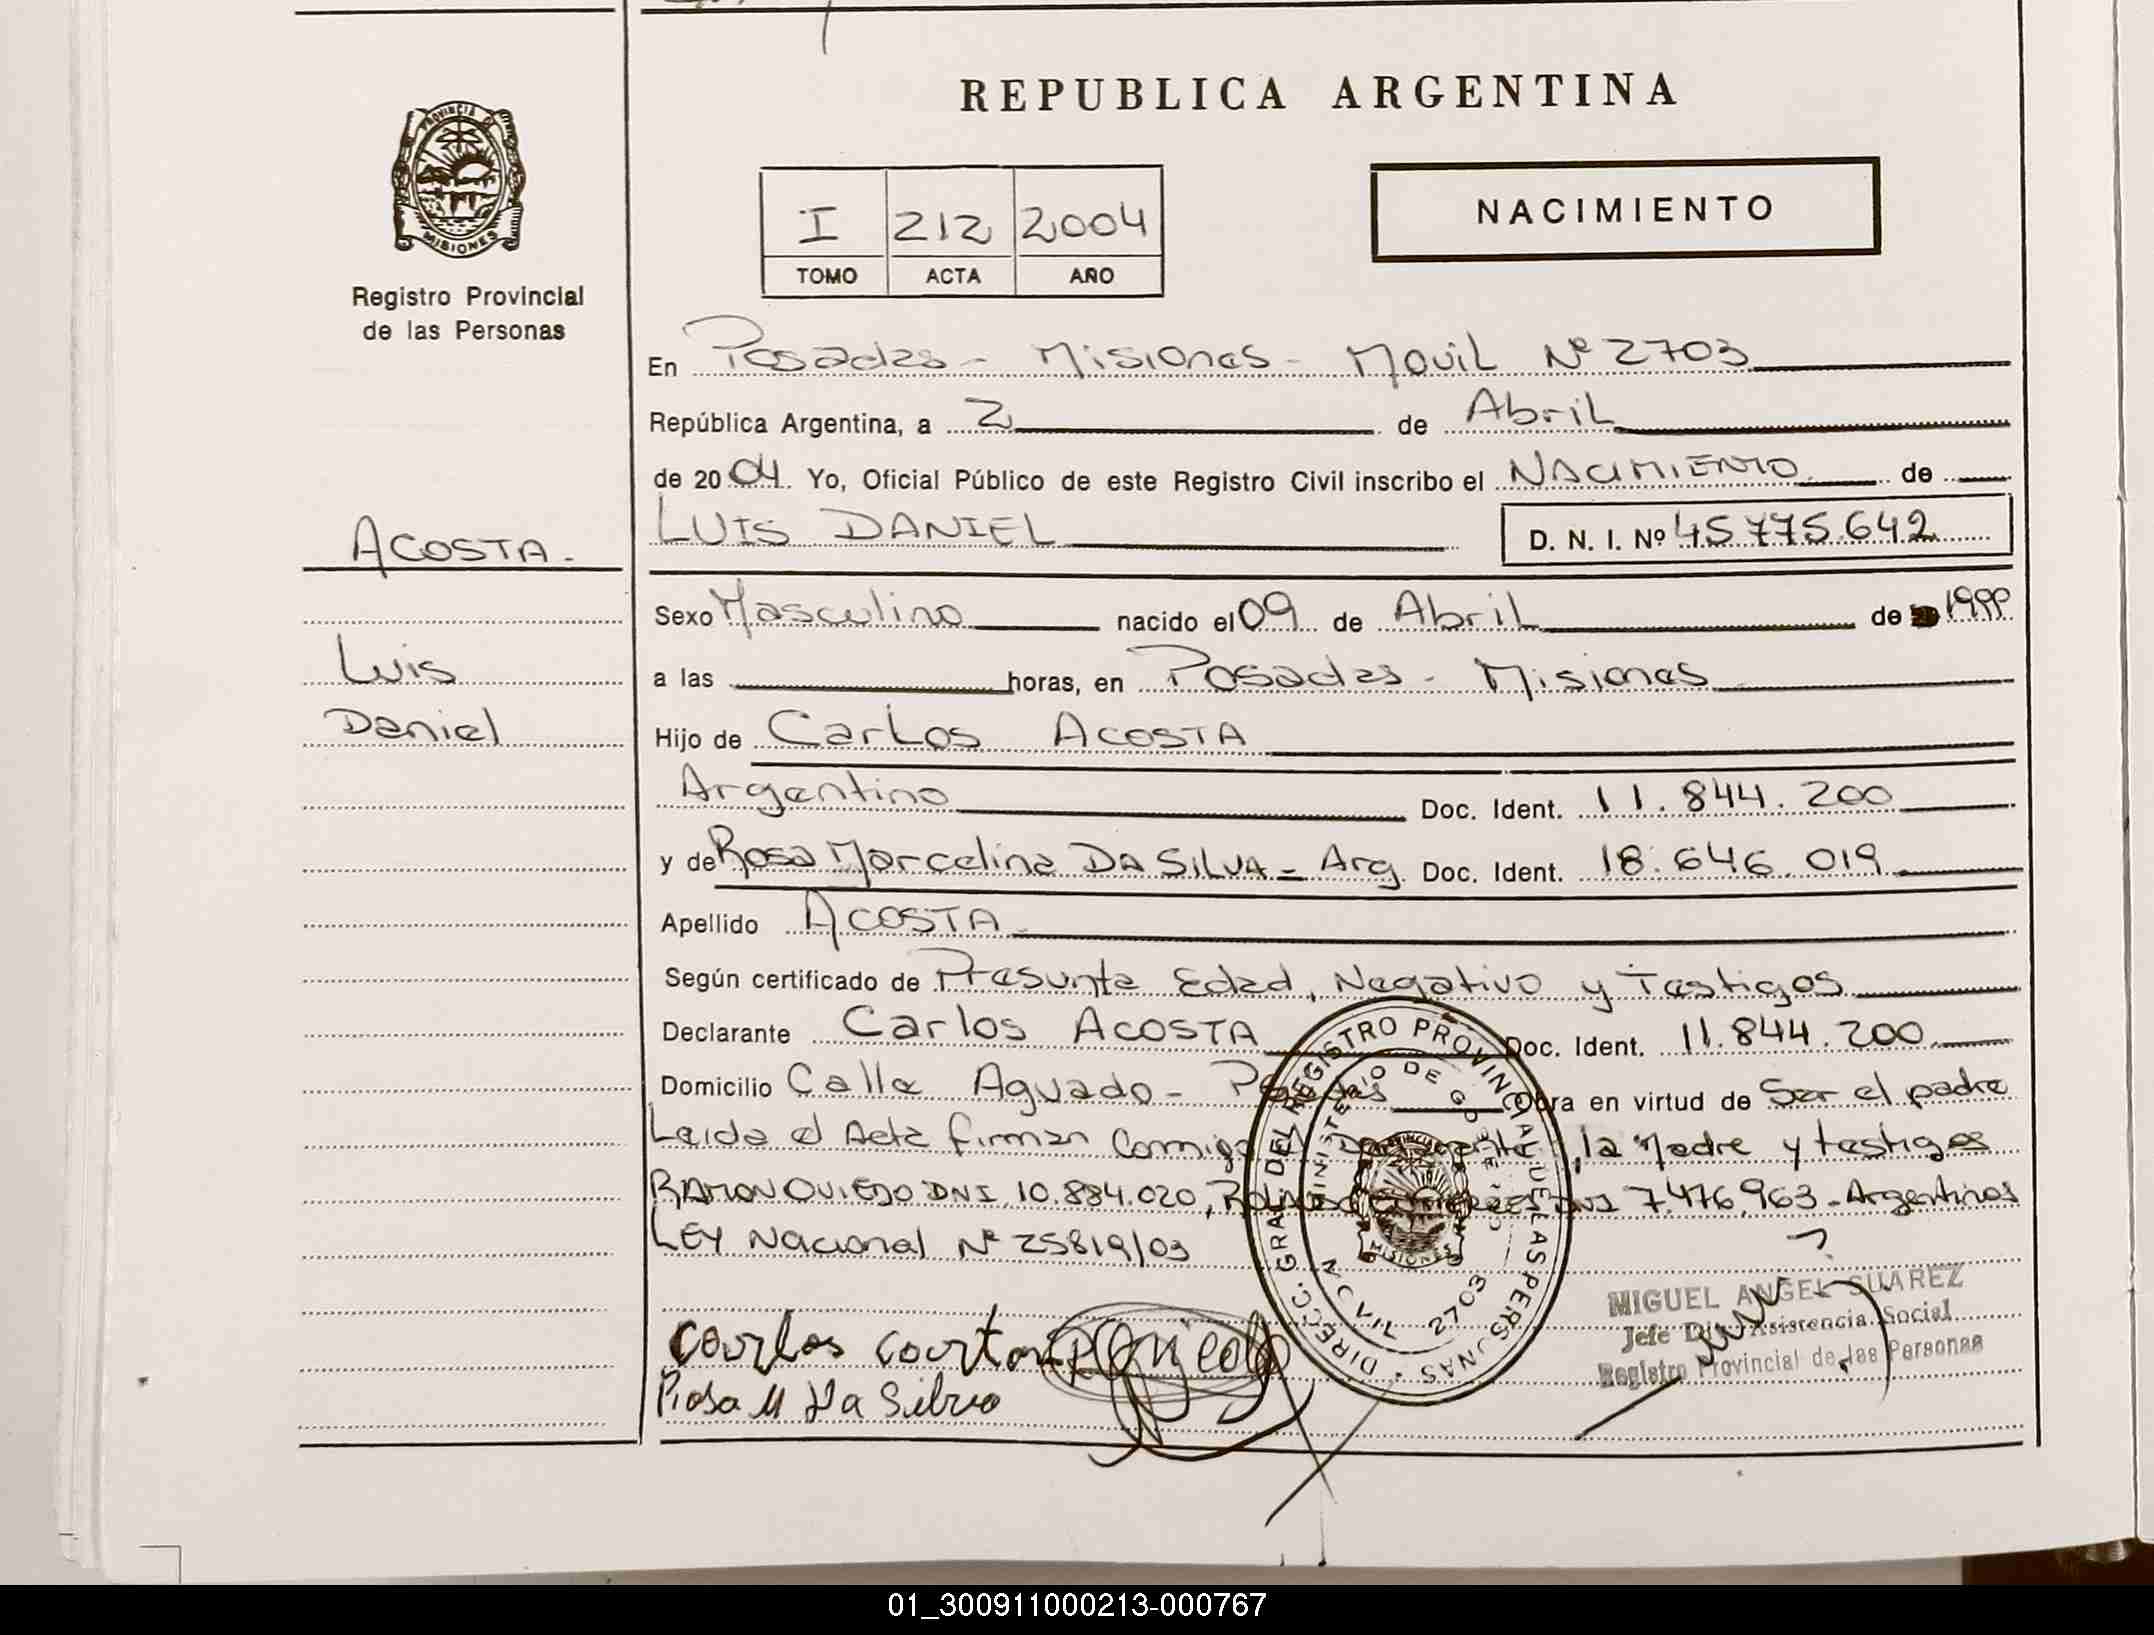 REPUBLICA ARGENTINA
PROVINCIA DE
MISIONES
Registro Provincial
de las Personas
I 212 2004
TOMO ACTA AÑO
NACIMIENTO
En Posadas - Misiones - Movil Nº 2703
República Argentina, a 2 de Abril
de 2004. Yo, Oficial Público de este Registro Civil inscribo el NACIMIENTO de
ACOSTA.
LUIS DANIEL D. N. I. Nº 45.775.642
Sexo Masculino nacido el 09 de Abril de 1999
Luis
a las horas, en Posadas - Misiones
Daniel
Hijo de Carlos ACOSTA
Argentino Doc. Ident. 11.844.200
y de Rosa Marcelina DA SILVA - Arg. Doc. Ident. 18.646.019
Apellido ACOSTA
Según certificado de Presunta Edad, Negativo y Testigos
Declarante Carlos ACOSTA Doc. Ident. 11.844.200
Domicilio Calle Aguado - Posadas Obra en virtud de Ser el padre
Leida el Acta firman Conmigo el Declarante, la Madre y testigos
RAMON OVIEDO DNI. 10.884.020, DNI 7.476.963 - Argentinos
LEY Nacional Nº 25819/03
DIRECC. GRAL. DEL REGISTRO PROVINCIAL DE LAS PERSONAS
MINISTERIO DE GOBIERNO
MISIONES
MOVIL 2703
MIGUEL ANGEL SUAREZ
Jefe Asistencia Social
Registro Provincial de las Personas
Rosa M Da Silva
01_300911000213-000767